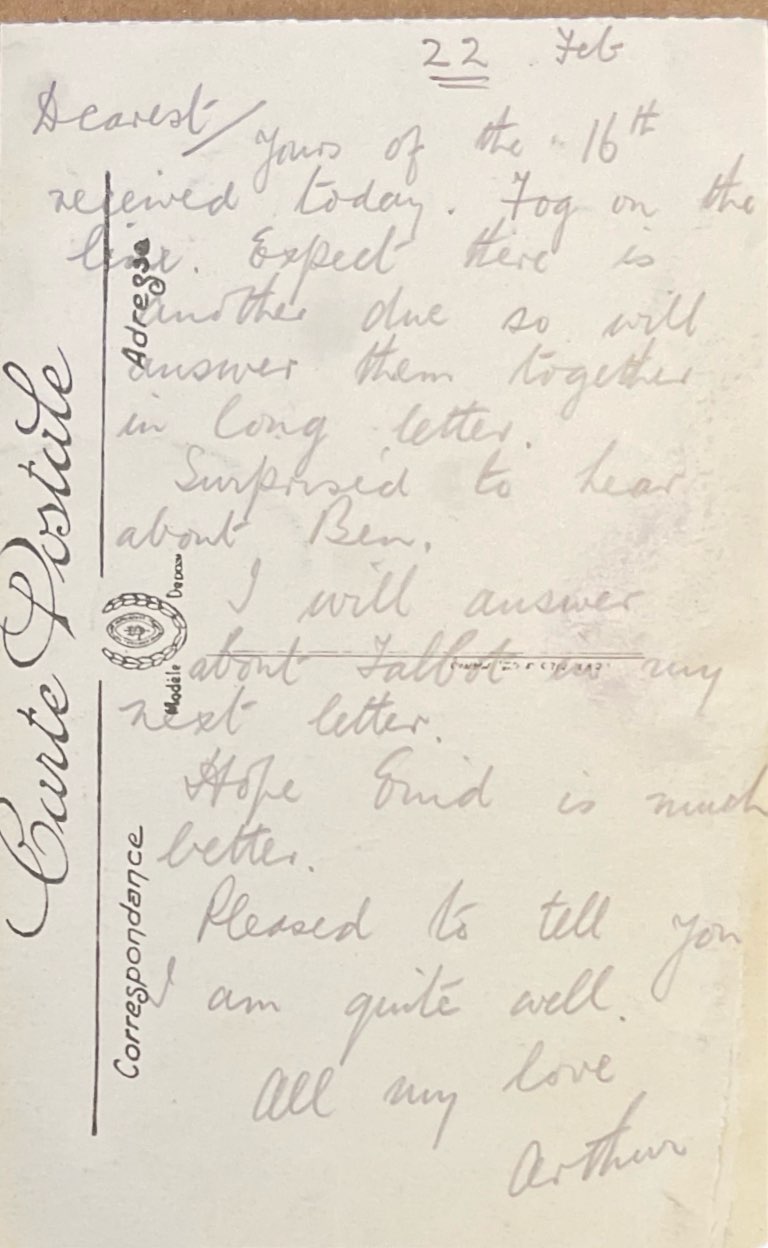 22 Feb
Dearest/
Yours of the 16th
received today. Fog on the
line. Expect there is
another due so will
answer them together
in long letter.
Surprised to hear
about Ben.
I will answer
about Talbot in my
next letter.
Hope Enid is much
better.
Pleased to tell you
I am quite well.
All my love
Arthur
Carte Postale
Adresse
Modèle Déposé
Correspondance